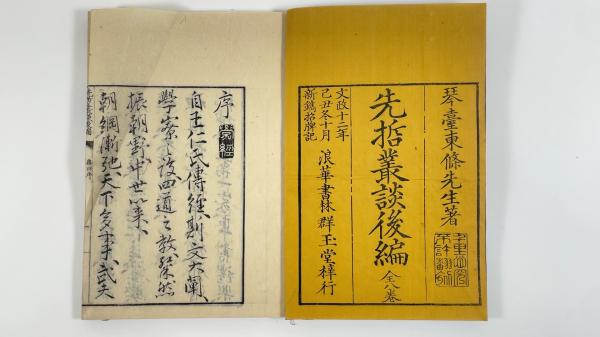 琴臺東條先生著
先哲叢談後編
全八卷
浪華書林 群玉堂梓行
文政十二年
己丑冬十月
新鐫招牌記
序
自王仁氏傳經斯文大闡
學寮之設四道之教粲然
振朝野中世以來
朝綱漸弛天下多事武夫